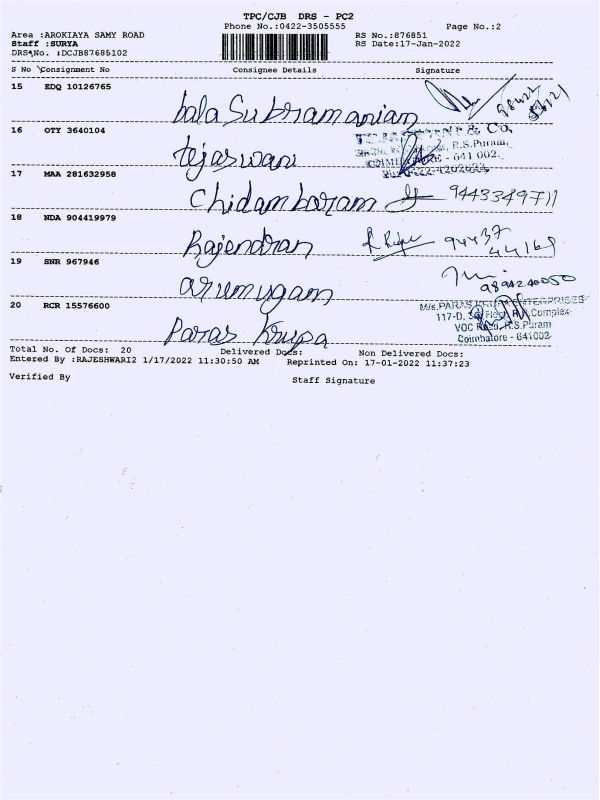 TPC/CJB DRS - PC2
Phone No.:0422-3505555 Page No.:2
Area :AROKIAYA SAMY ROAD RS No.:876851
Staff :SURYA RS Date:17-Jan-2022
DRS No. :DCJB87685102
S No Consignment No Consignee Details Signature
15 EDQ 10126765
bala Subramanian
16 OTY 3640104 & Co,
tejaswani R.S.Puram,
- 641 002.
17 MAA 281632958
Chidambaram 9443349711
18 NDA 904419979
Rajendran 94437
44169
19 SNR 967946
arumugam
20 RCR 15576600 M/s.PARAS KRUPA ENTERPRISES
117-D, Complex
VOC Road, R.S.Puram
Paras Krupa Coimbatore - 641002
Total No. Of Docs: 20 Delivered Docs: Non Delivered Docs:
Entered By :RAJESHWARI2 1/17/2022 11:30:50 AM Reprinted On: 17-01-2022 11:37:23
Verified By Staff Signature